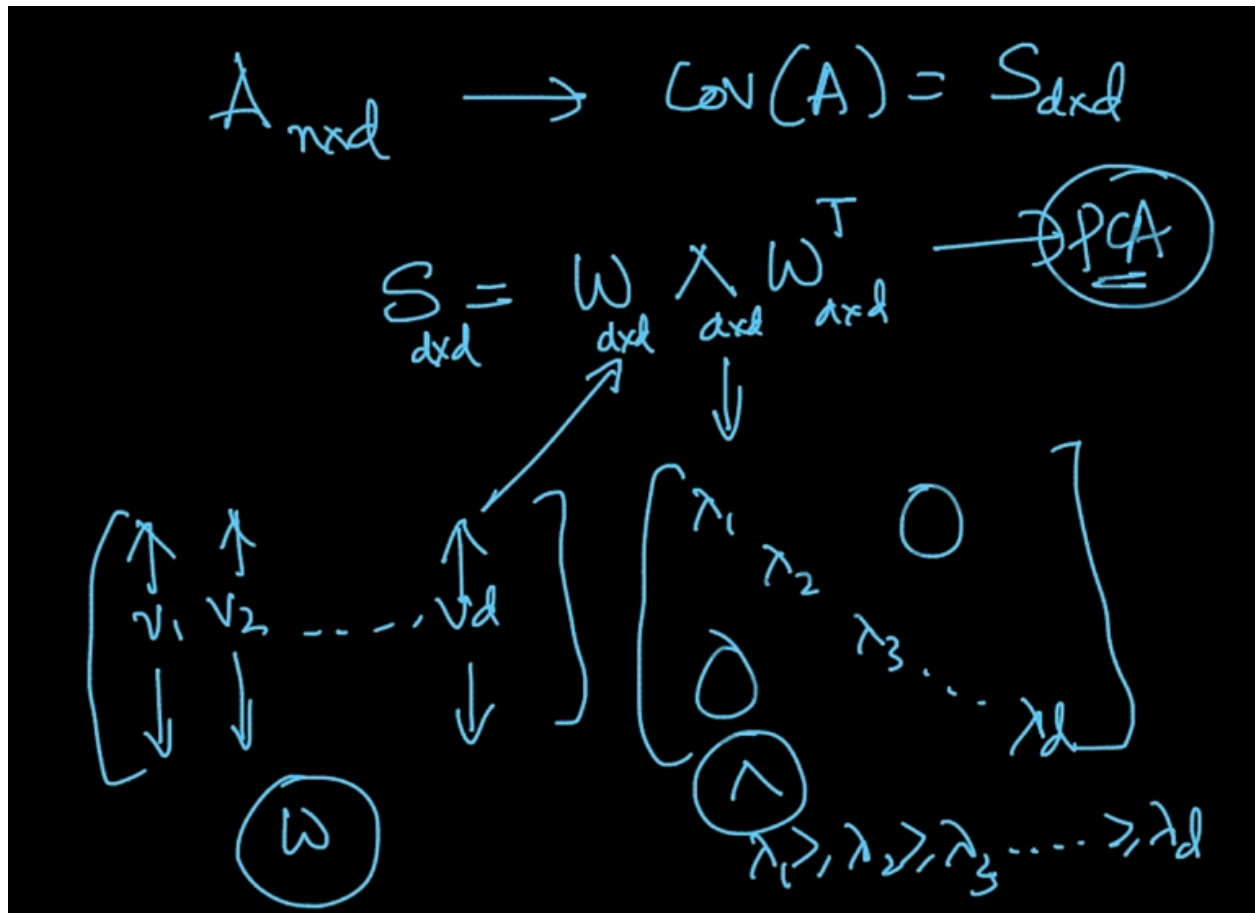 A nxd → Cov(A) = S dxd
S dxd = W dxd Λ dxd W^T dxd → PCA
v1 v2 ----. vd
λ1 0
λ2
λ3
0 ...
λd
W Λ
λ1 ≥ λ2 ≥ λ3 ..... ≥ λd